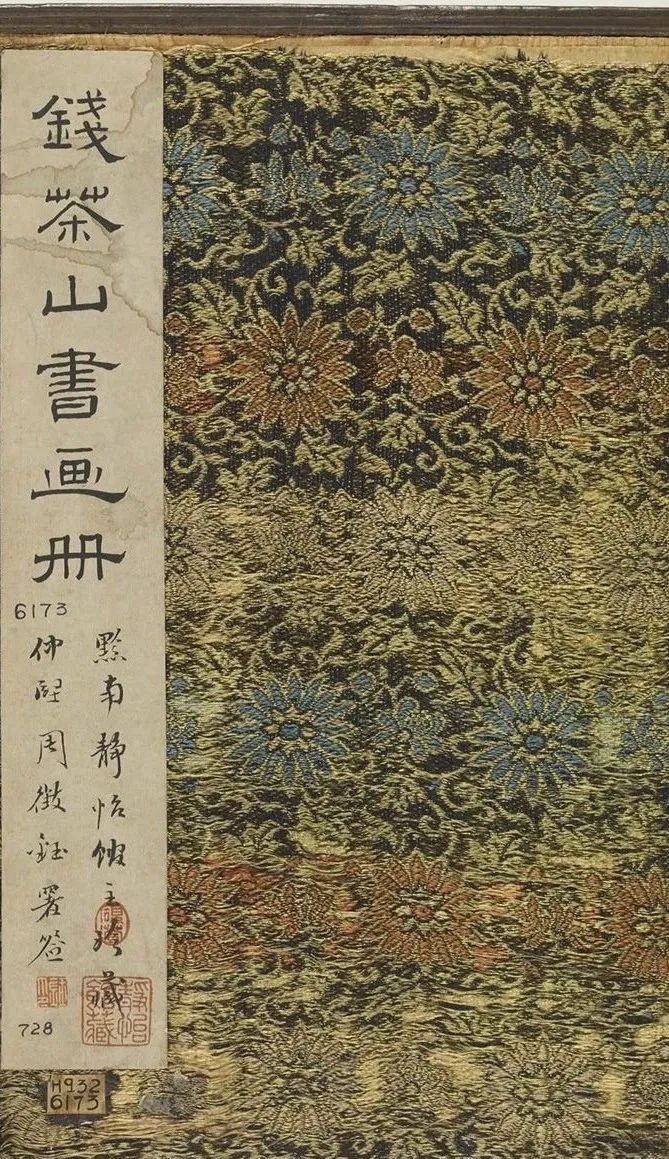 錢茶山書画册
6173
黔南靜怡館主珍藏
仲熙周徵鈺署簽
728
H932
6173